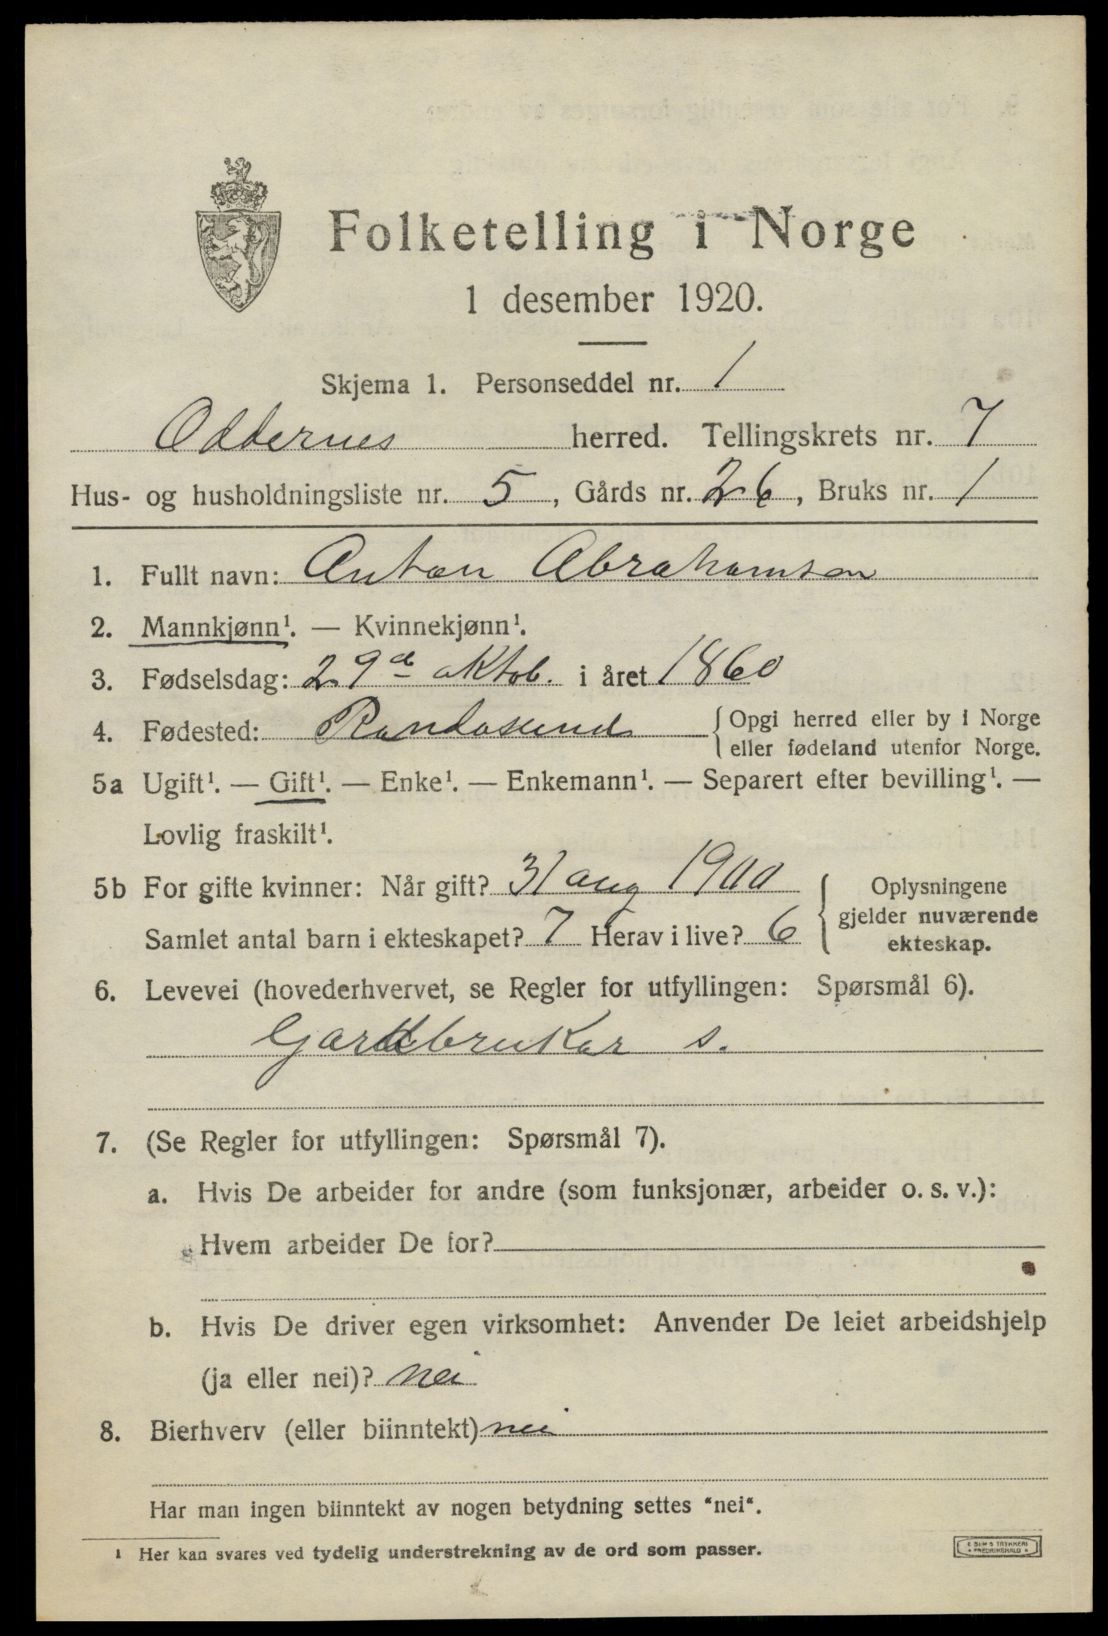 Folketelling i Norge
1 desember 1920.
Skjema 1. Personseddel nr. 1
Oddernes herred. Tellingskrets nr. 7
Hus- og husholdningsliste nr. 5, Gårds nr. 26, Bruks nr. 1
1. Fullt navn: Anton Abrahamsen
2. Mannkjønn¹. — Kvinnekjønn¹.
3. Fødselsdag: 29de oktob. i året 1860
4. Fødested: Randøsund { Opgi herred eller by i Norge
eller fødeland utenfor Norge.
5a Ugift¹. — Gift¹. — Enke¹. — Enkemann¹. — Separert efter bevilling¹. —
Lovlig fraskilt¹.
5b For gifte kvinner: Når gift? 31 aug 1900
Samlet antal barn i ekteskapet? 7 Herav i live? 6
{ Oplysningene
gjelder nuværende
ekteskap.
6. Levevei (hovederhvervet, se Regler for utfyllingen: Spørsmål 6).
Gardbrukar s.
7. (Se Regler for utfyllingen: Spørsmål 7).
a. Hvis De arbeider for andre (som funksjonær, arbeider o. s. v.):
Hvem arbeider De for?
b. Hvis De driver egen virksomhet: Anvender De leiet arbeidshjelp
(ja eller nei)? nei
8. Bierhverv (eller biinntekt) nei
Har man ingen biinntekt av nogen betydning settes "nei".
¹ Her kan svares ved tydelig understrekning av de ord som passer.